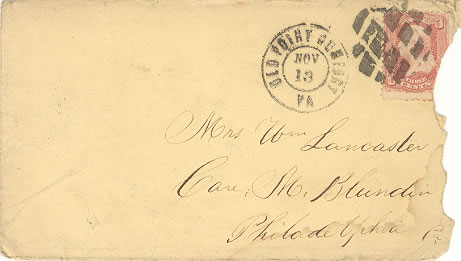 OLD POINT COMFORT
NOV
13
VA
3
THREE
CENTS
Mrs Wm Lancaster
Care, M. Blundin
Philadelphia Pa